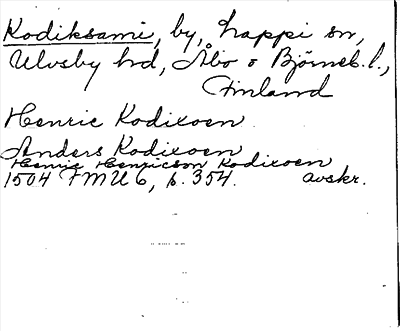 Kodiksami, by, Lappi sn,
Ulvsby hd, Åbo o Björneb. l.,
Finland
Henric Kodixoen
Anders Kodixoen
Henric Henricson Kodixoen
1504 FMU 6, s. 354. avskr.